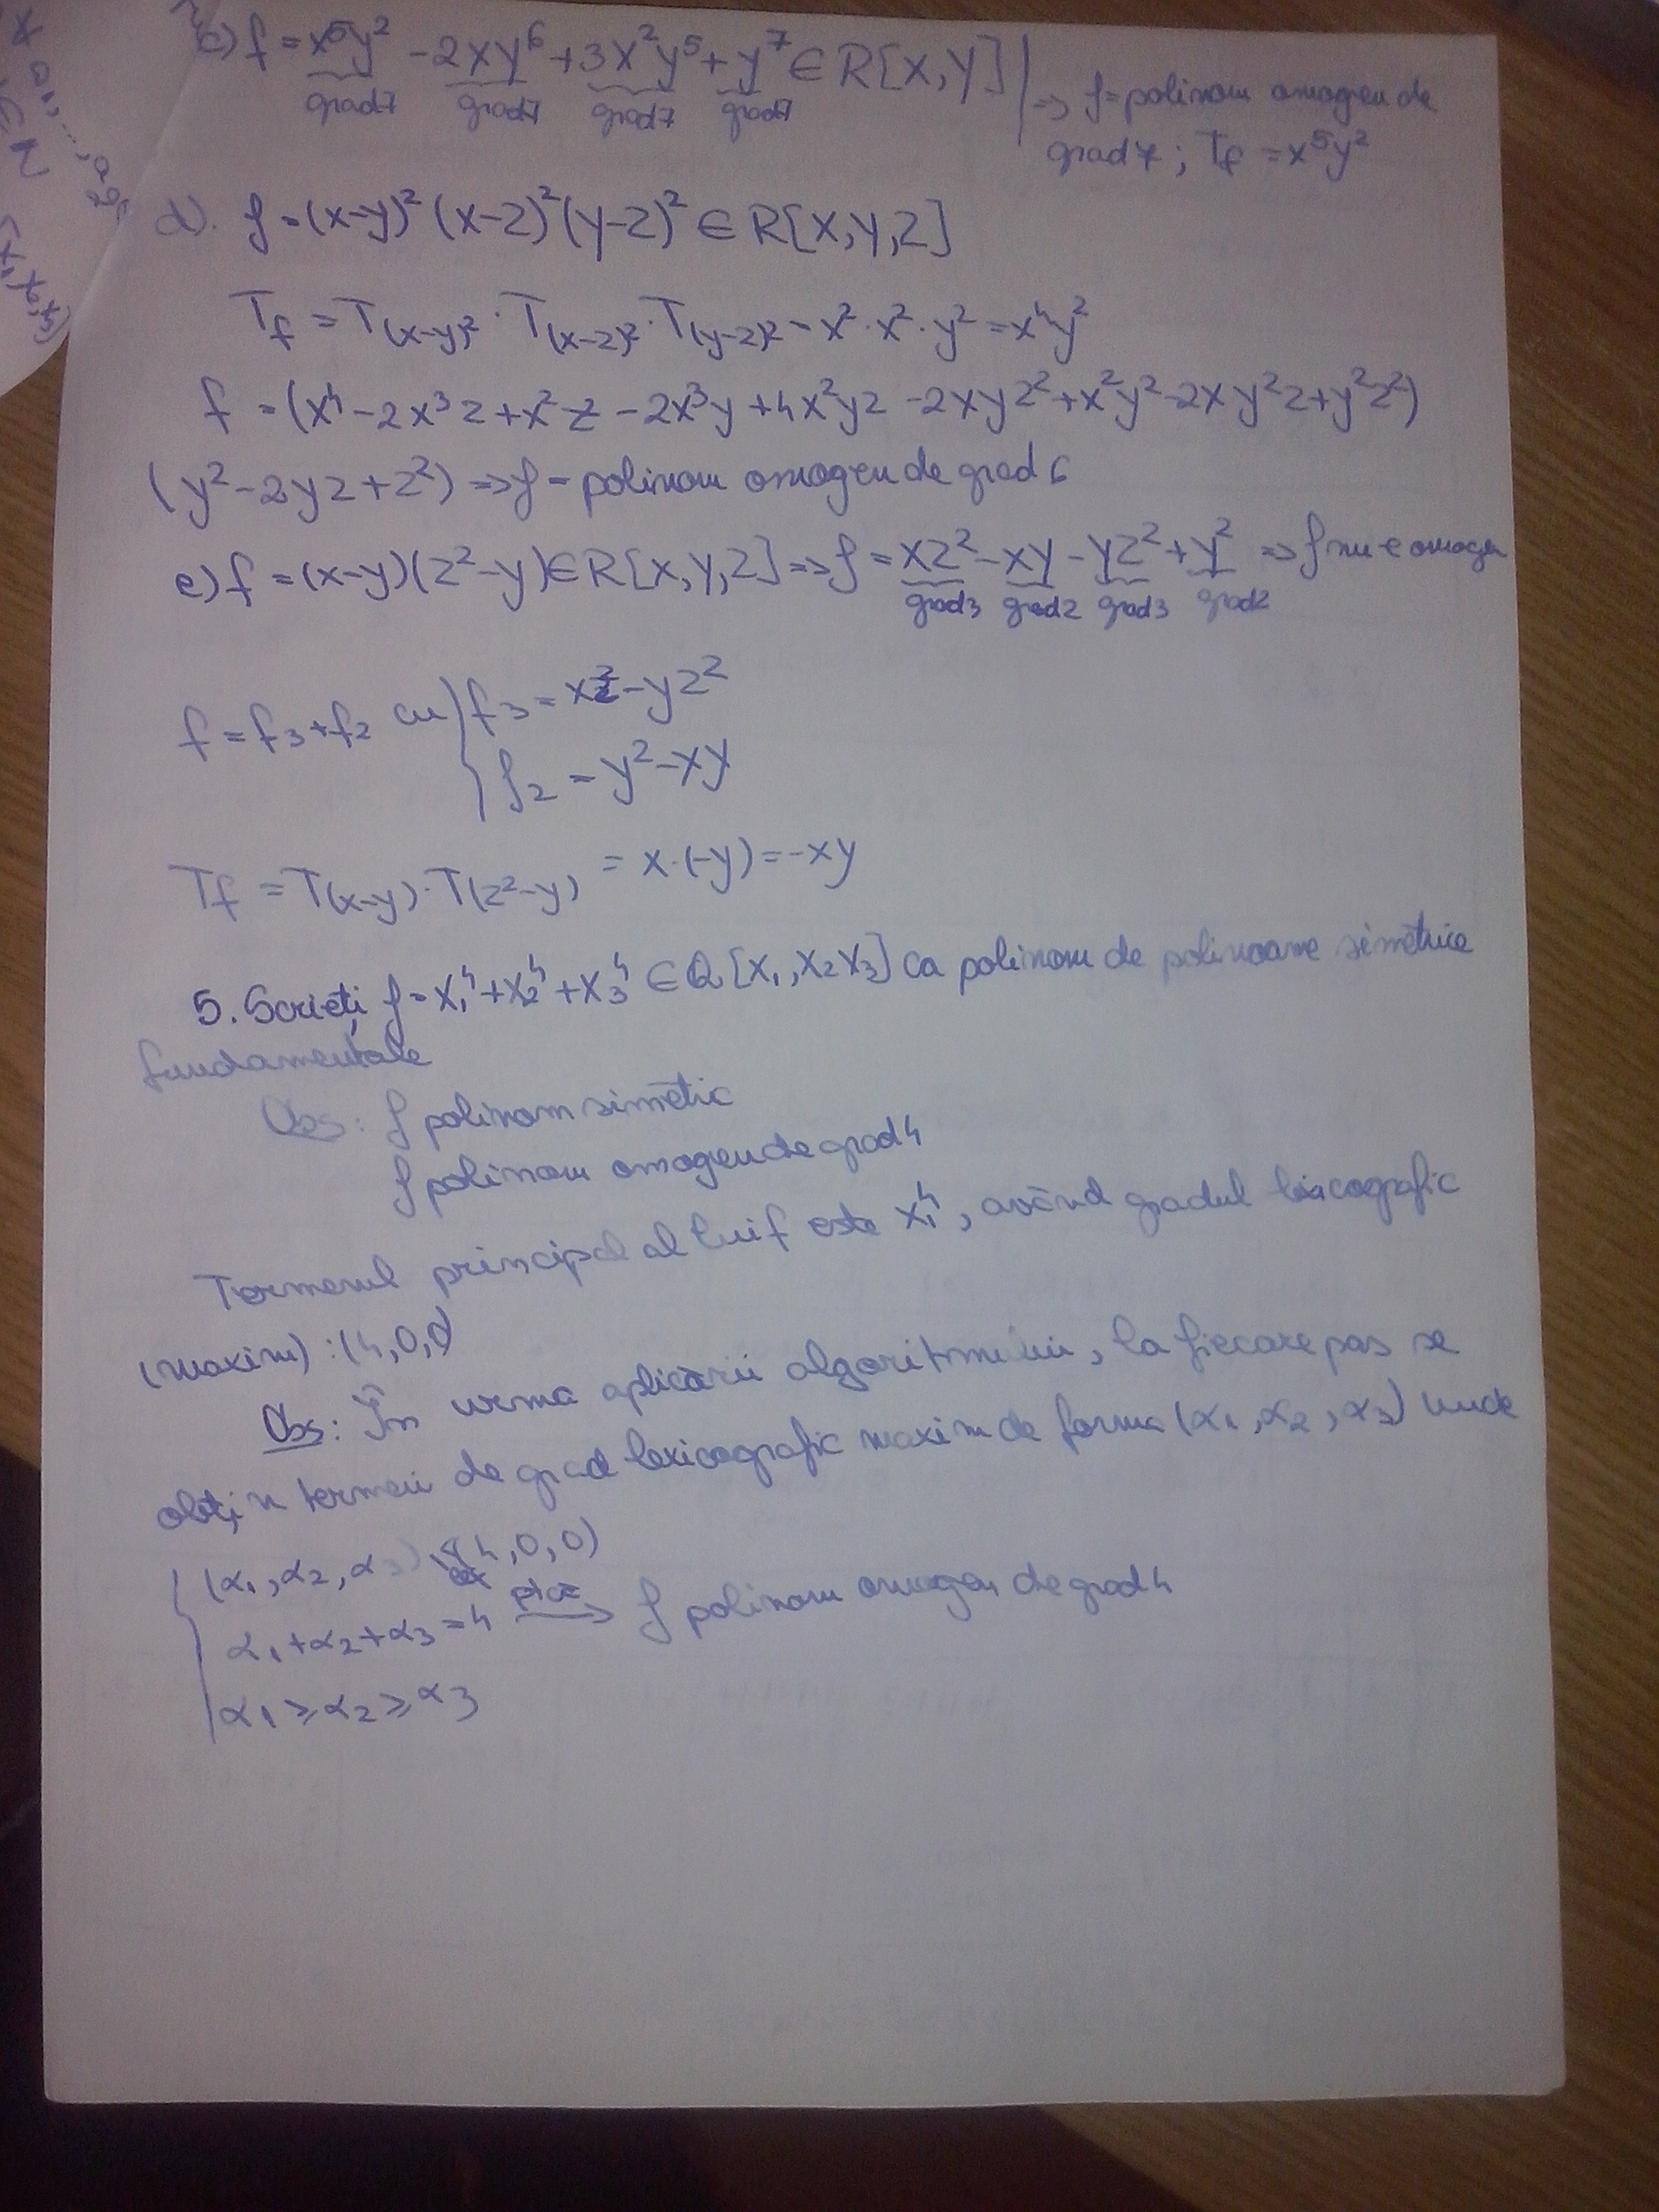 c) f = x⁵y² - 2xy⁶ + 3x²y⁵ + y⁷ ∈ R[X,Y]
grad7 grad7 grad7 grad7 => f = polinom omogen de
grad 7 ; Tf = x⁵y²
d). f = (x-y)² (x-z)² (y-z)² ∈ R[X,Y,Z]
Tf = T(x-y)² · T(x-z)² · T(y-z)² = x² · x² · y² = x⁴y²
f = (x⁴ - 2x³z + x²z - 2x³y + 4x²yz - 2xyz² + x²y² - 2xy²z + y²z²)
(y² - 2yz + z²) => f = polinom omogen de grad 6
e) f = (x-y)(z²-y) ∈ R[X,Y,Z] => f = xz² - xy - yz² + y² => f nu e omogen
grad3 grad2 grad3 grad2
f = f₃ + f₂ cu { f₃ = xz² - yz²
f₂ = y² - xy
Tf = T(x-y) · T(z²-y) = x·(-y) = -xy
5. Scrieți f = X₁⁴ + X₂⁴ + X₃⁴ ∈ Q[X₁, X₂ X₃] ca polinom de polinoame simetrice
fundamentale
Obs: f polinom simetic
f polinom omogen de grad 4
Termenul principal al lui f este X₁⁴, având gradul lexicografic
(maxim) : (4,0,0)
Obs: În urma aplicării algoritmului, la fiecare pas se
obțin termeni de grad lexicografic maxim de forma (α₁, α₂, α₃) unde
{ (α₁, α₂, α₃) (4,0,0)
α₁+α₂+α₃ = 4 → f polinom omogen de grad 4
α₁ ≥ α₂ ≥ α₃